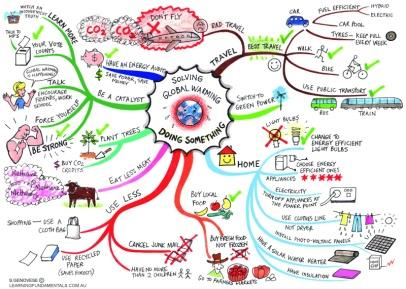 WATCH AN
INCONVENIENT
TRUTH
LEARN MORE
TALK TO
YOUR VOTE
COUNTS
GLOBAL WARMING
IS HAPPENING
TALK
ENCOURAGE
FRIENDS, WORK,
SCHOOL
FORCE YOURSELF
BE STRONG
BE A CATALYST
HAVE AN ENERGY AUDIT
SAVE POWER, SAVE
PLANT TREES
$ BUY CO2
CREDITS
EAT LESS MEAT
Methane
Methane
Methane
USE LESS
SHOPPING
USE A
CLOTH BAG
USE RECYCLED
PAPER
(SAVES FORESTS)
CANCEL JUNK MAIL
HAVE NO MORE
THAN 2 CHILDREN
BUY LOCAL
FOOD
BUY FRESH FOOD
NOT FROZEN
GO TO FARMERS MARKETS
SOLVING
GLOBAL WARMING
DOING SOMETHING
DON'T FLY
CO2
CO2
BAD TRAVEL
TRAVEL
BEST TRAVEL
CAR
FUEL EFFICIENT
HYBRID
ELECTRIC
CAR POOL
TYRES - KEEP FULL
EVERY WEEK
WALK
BIKE
USE PUBLIC TRANSPORT
BUS
TRAIN
SWITCH TO
GREEN POWER
HOME
LIGHT
BULBS
CHANGE TO
ENERGY EFFICIENT
LIGHT BULBS
APPLIANCES
CHOOSE ENERGY
EFFICIENT ONES
ELECTRICITY
TURN OFF APPLIANCES AT
THE POWER POINT
OFF
USE CLOTHES LINE
NOT DRYER
INSTALL PHOTO-VOLTAIC PANELS
HAVE A SOLAR WATER HEATER
HAVE INSULATION
S.GENOVESE ©
LEARNINGFUNDAMENTALS.COM.AU